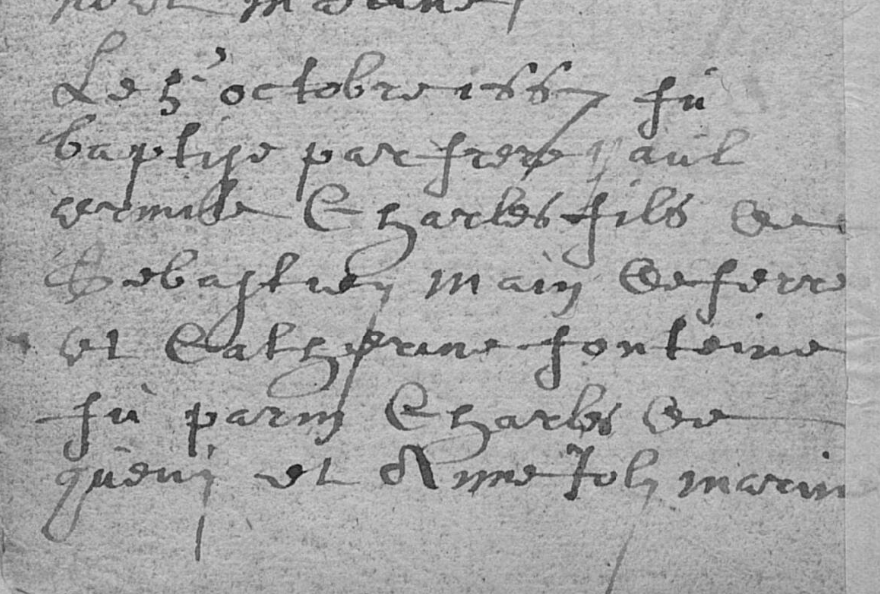 Le 5e octobre 1667 fü
baptise par frere paul
ermite Charles fils de
Sebastien main de ferre
et Catherine fonteine
fü parin Charles de
queuÿ et Anne Joly marin